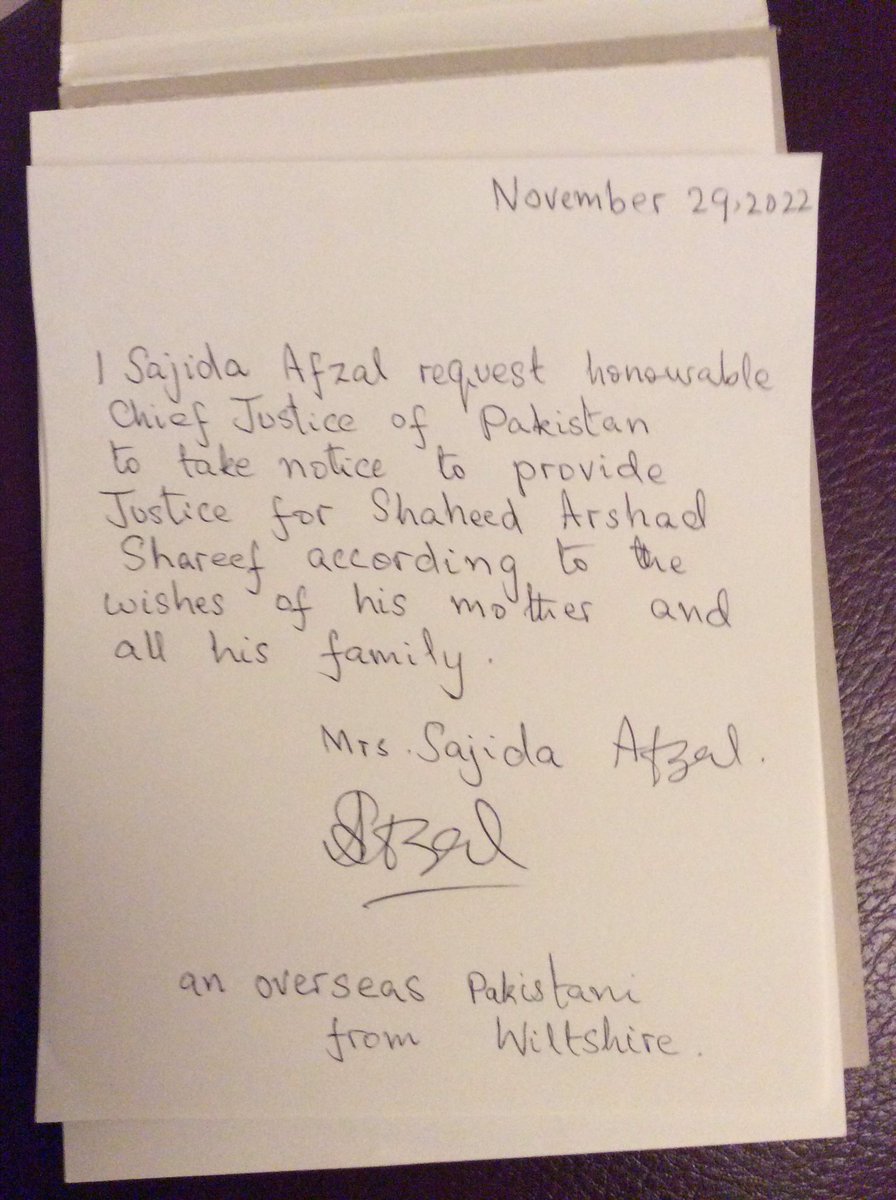 November 29, 2022
I Sajida Afzal request honourable
Chief Justice of Pakistan
to take notice to provide
Justice for Shaheed Arshad
Shareef according to the
wishes of his mother and
all his family.
Mrs. Sajida Afzal.
SAfzal
an overseas Pakistani
from Wiltshire.